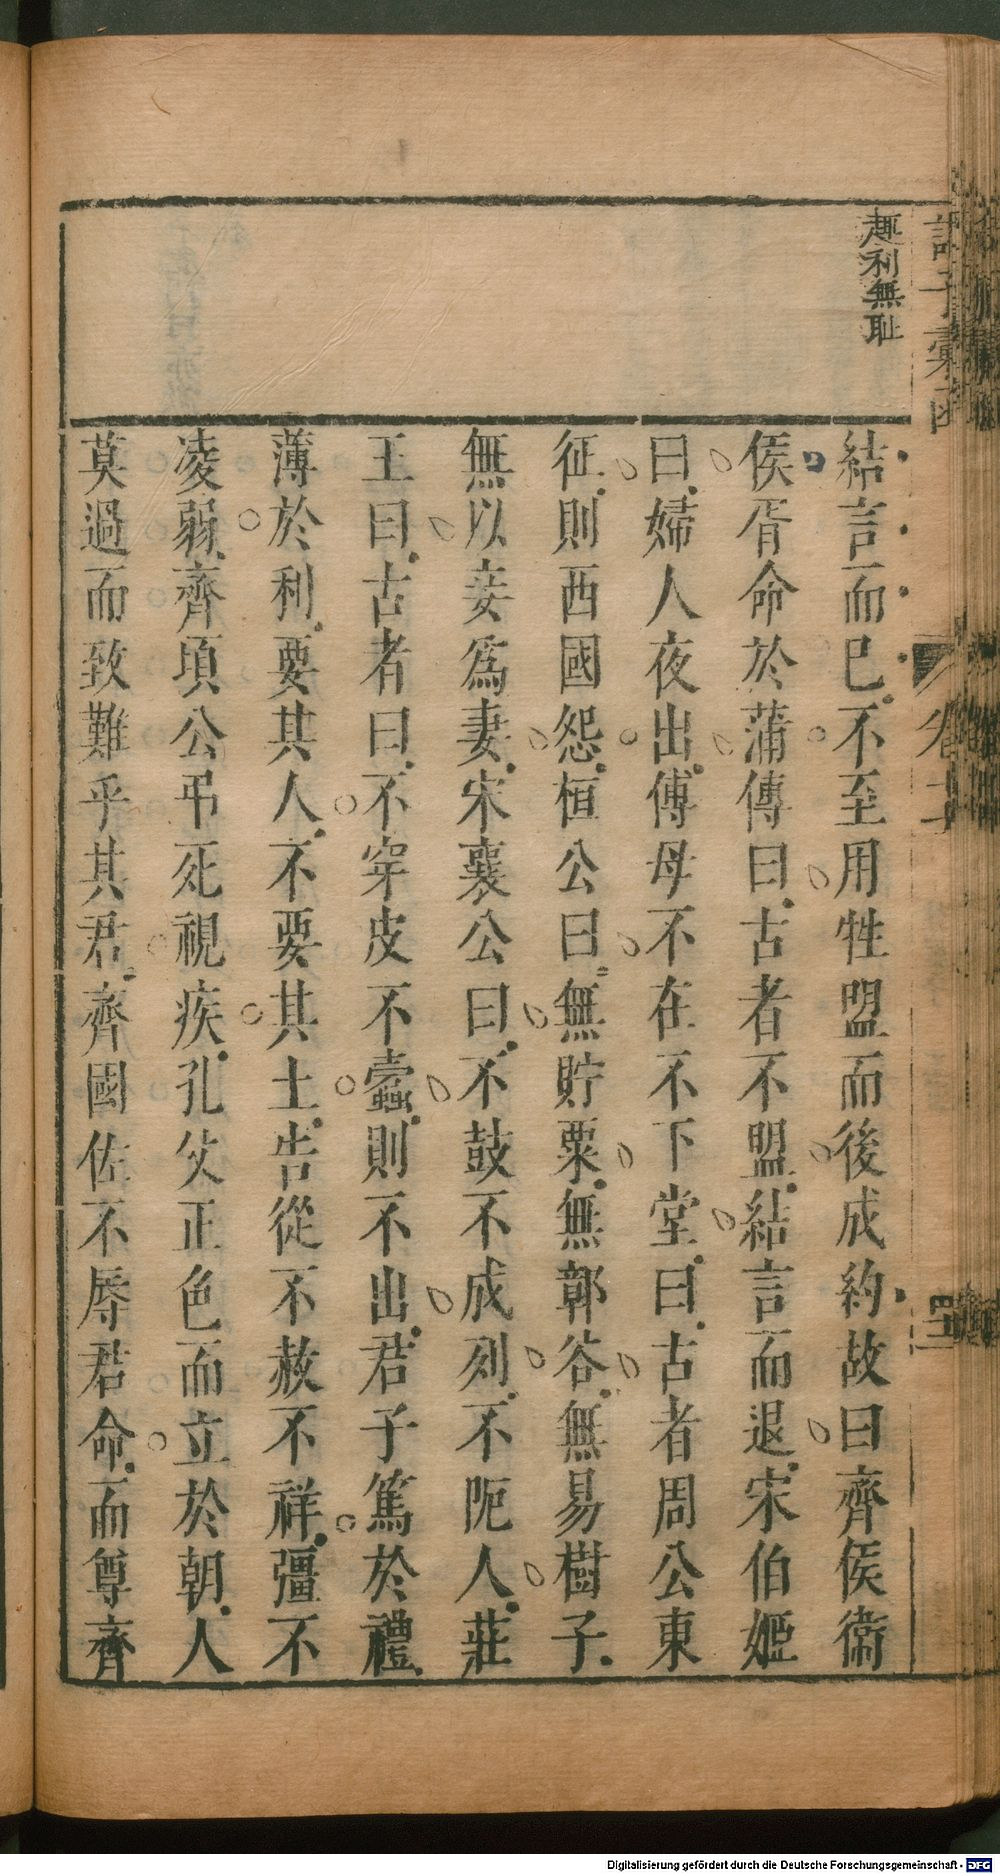 趣利無耻
結言而已不至用牲盟而後成約故曰齊侯衞
侯胥命於蒲傳曰古者不盟結言而退宋伯姬
曰婦人夜出傅母不在不下堂曰古者周公東
征則西國怨桓公曰無貯粟無鄣谷無易樹子
無以妾爲妻宋襄公曰不鼓不成列不阨人莊
王曰古者曰不穿皮不蠹則不出君子篤於禮
薄於利要其人不要其土告從不赦不祥彊不
凌弱齊頃公弔死視疾孔父正色而立於朝人
莫過而致難乎其君齊國佐不辱君命而尊齊
Digitalisierung gefördert durch die Deutsche Forschungsgemeinschaft - DFG